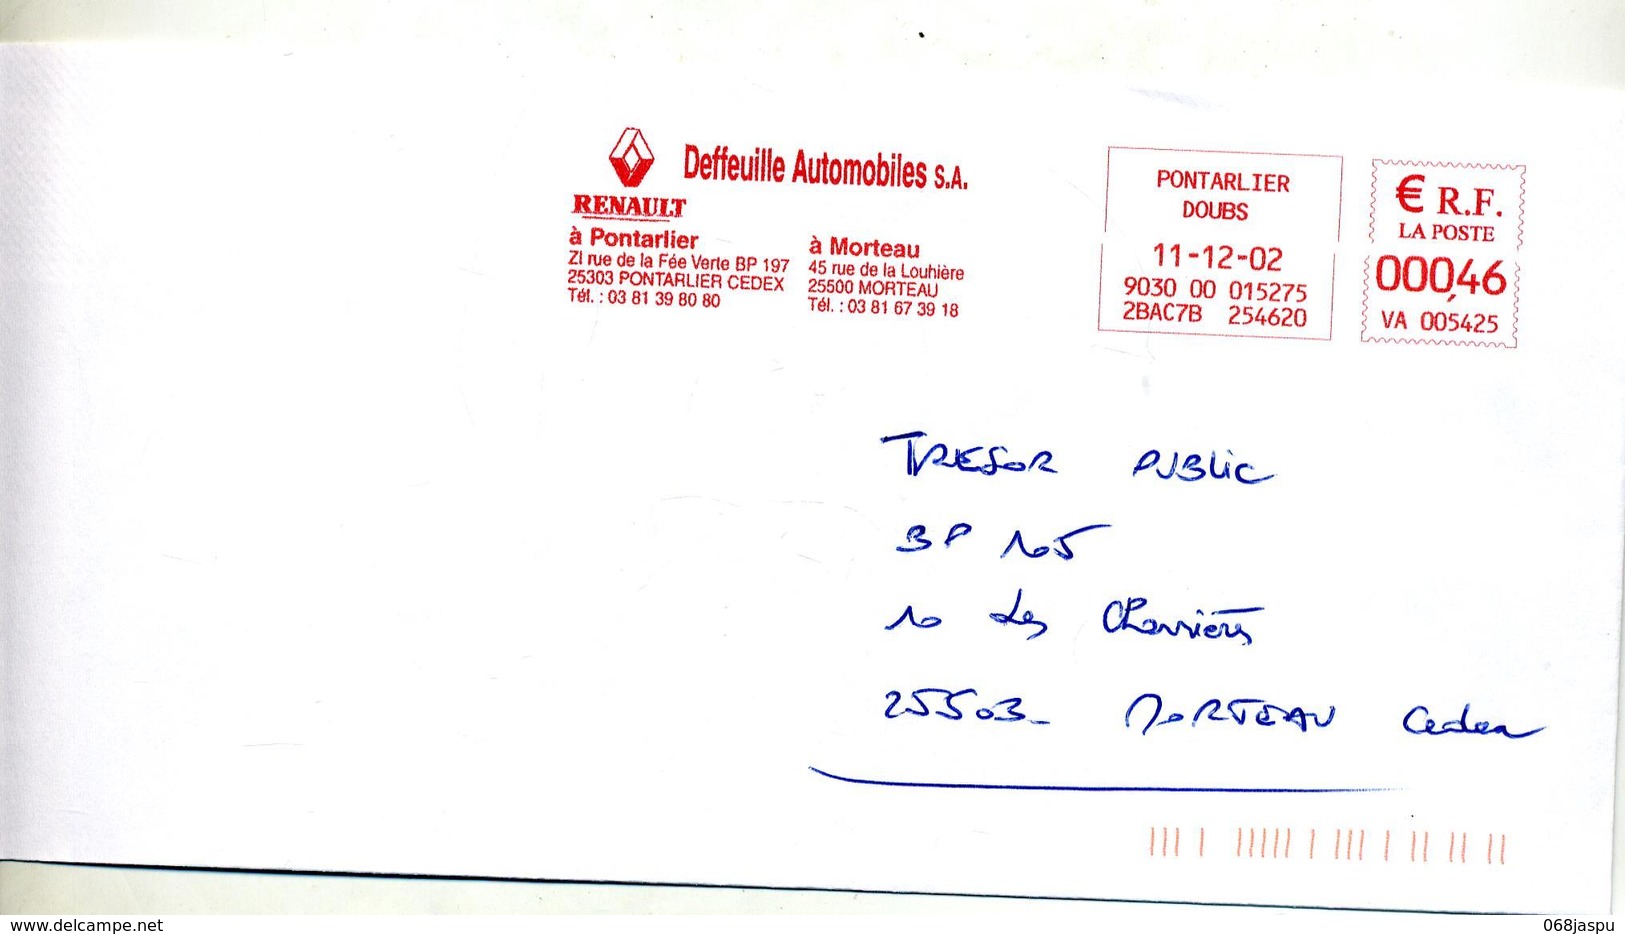 Deffeuille Automobiles S.A.
RENAULT
à Pontarlier
ZI rue de la Fée Verte BP 197
25303 PONTARLIER CEDEX
Tél. : 03 81 39 80 80
à Morteau
45 rue de la Louhière
25500 MORTEAU
Tél. : 03 81 67 39 18
PONTARLIER
DOUBS
11-12-02
9030 00 015275
2BAC7B 254620
€ R.F.
LA POSTE
000,46
VA 005425
TRESOR PUBLIC
BP 105
10 Les Charrières
25503 - MORTEAU Cedex
www.delcampe.net
068jaspu